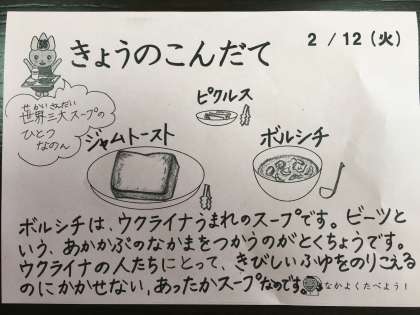 きょうのこんだて
2/12(火)
せかいさんだい
世界三大スープの
ひとつ
なのん
ピクルス
ジャムトースト
ボルシチ
ボルシチは、ウクライナうまれのスープです。ビーツと
いう、あかかぶのなかまをつかうのがとくちょうです。
ウクライナの人たちにとって、きびしいふゆをのりこえる
のにかかせない、あったかスープなのです。
なかよくたべよう！